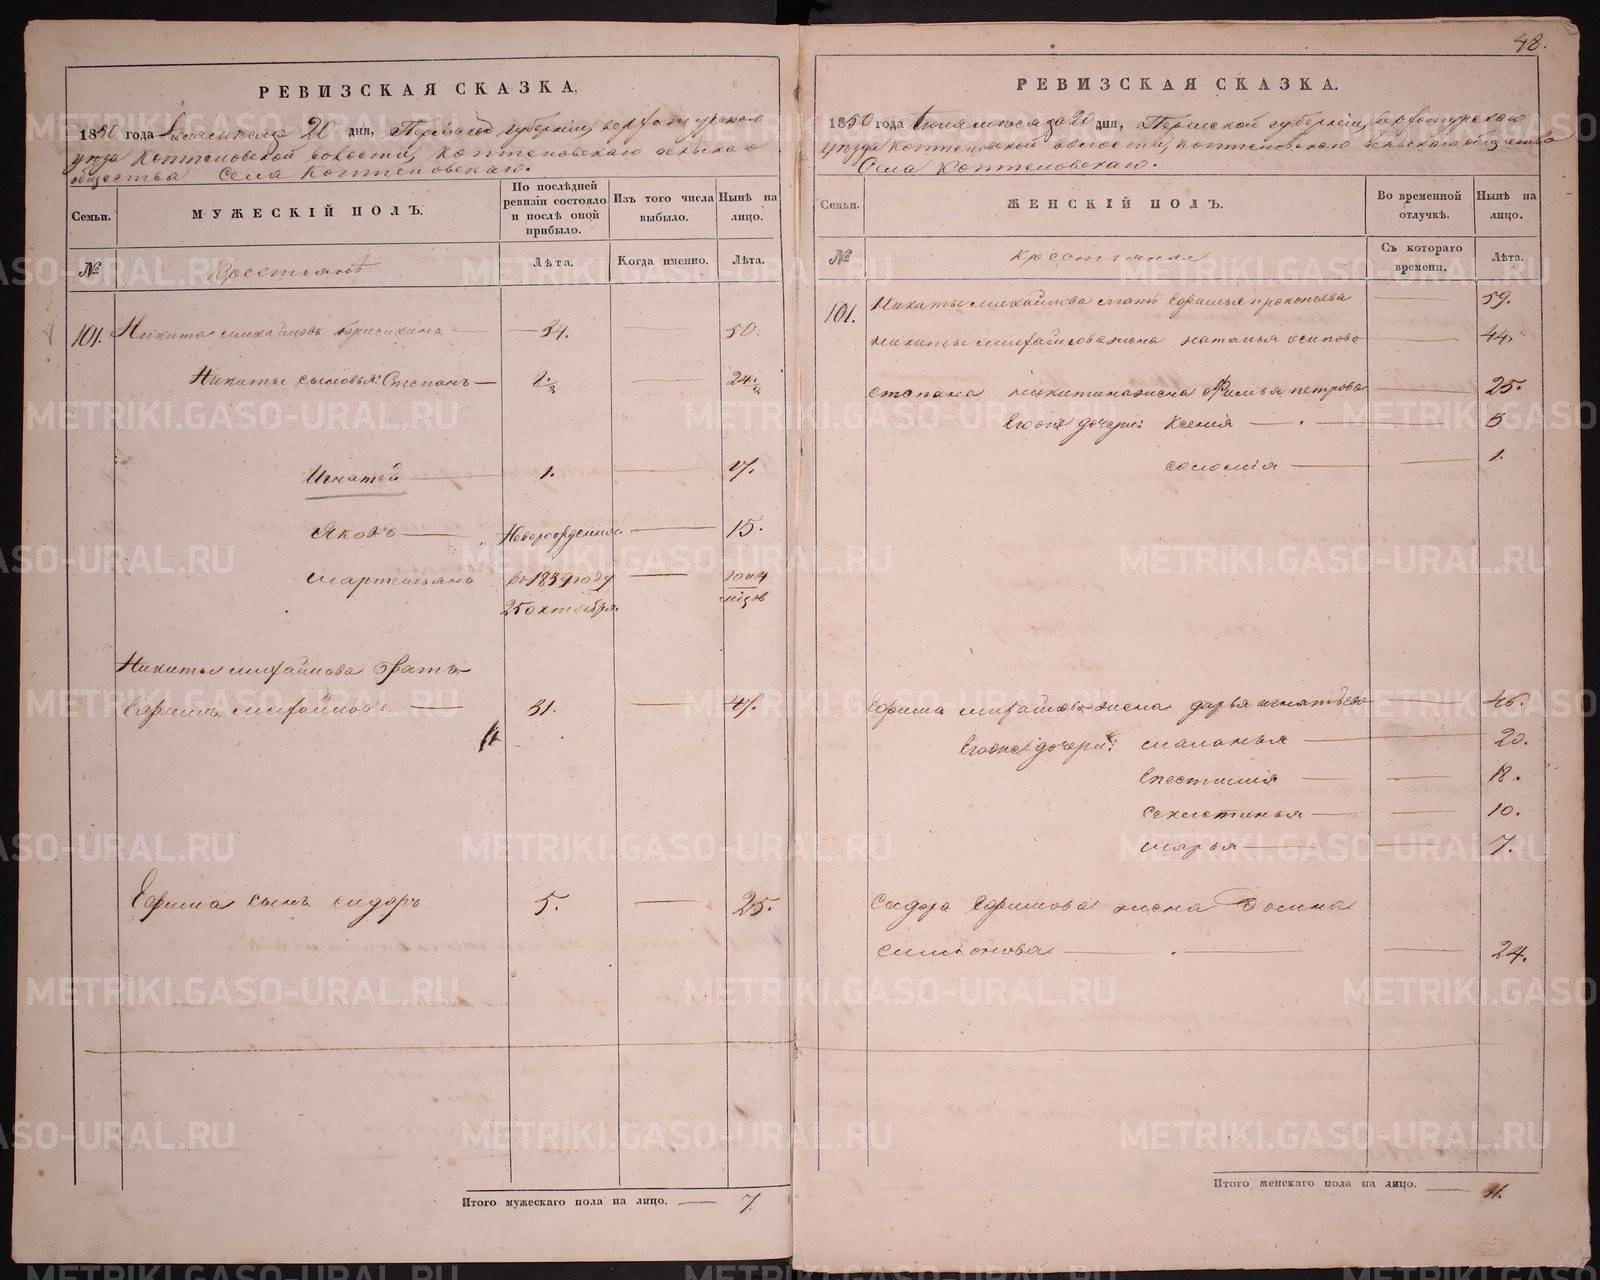 48.
РЕВИЗСКАЯ СКАЗКА.
1850 года 20 дня, Пермской губерніи, верхотурскаго
уезда Коптеловской волости, Коптеловскаго сельскаго
общества Села Коптеловскаго.
Семьи.
МУЖЕСКІЙ ПОЛЪ.
По послѣдней ревизіи состояло и послѣ оной прибыло.
Изъ того числа выбыло.
Нынѣ на лицо.
№
Крестьянѣ
Лѣта.
Когда именно.
Лѣта.
101. Никита михайловъ — 34. 50.
Никиты сыновья: Степанъ — — 24.
Игнатей — 1. — 17.
Яковъ — — 15.
мартемьянъ въ 1839 году — 10 и 4
25 октября
Никиты михайлова братъ
Ефимъ михайловъ — 31. — 47.
Ефима сынъ сидоръ 5. — 25.
Итого мужескаго пола на лицо. — 7.
РЕВИЗСКАЯ СКАЗКА.
1850 года 20 дня, Пермской губерніи, верхотурскаго
уезда Коптеловской волости, коптеловскаго сельскаго общества
Села Коптеловскаго.
Семьи.
ЖЕНСКІЙ ПОЛЪ.
Во временной отлучкѣ.
Нынѣ на лицо.
№
Крестьянки
Съ котораго времени.
Лѣта.
101. Никиты михайлова мать прокопьева — 59.
никиты михайлова жена наталья осипова — 44.
степана никитина жена петрова — 25.
Егоже дочери: Ксенія — 3
соломія — — 1.
Ефима михайлова жена дарья игнатьева — 46.
Егоже дочери: маланья — — 20.
— — 18.
— — 10.
марья — — 7.
Сидора Ефимова жена Домна
— — 24.
Итого женскаго пола на лицо. — 11.
METRIKI.GASO-URAL.RU